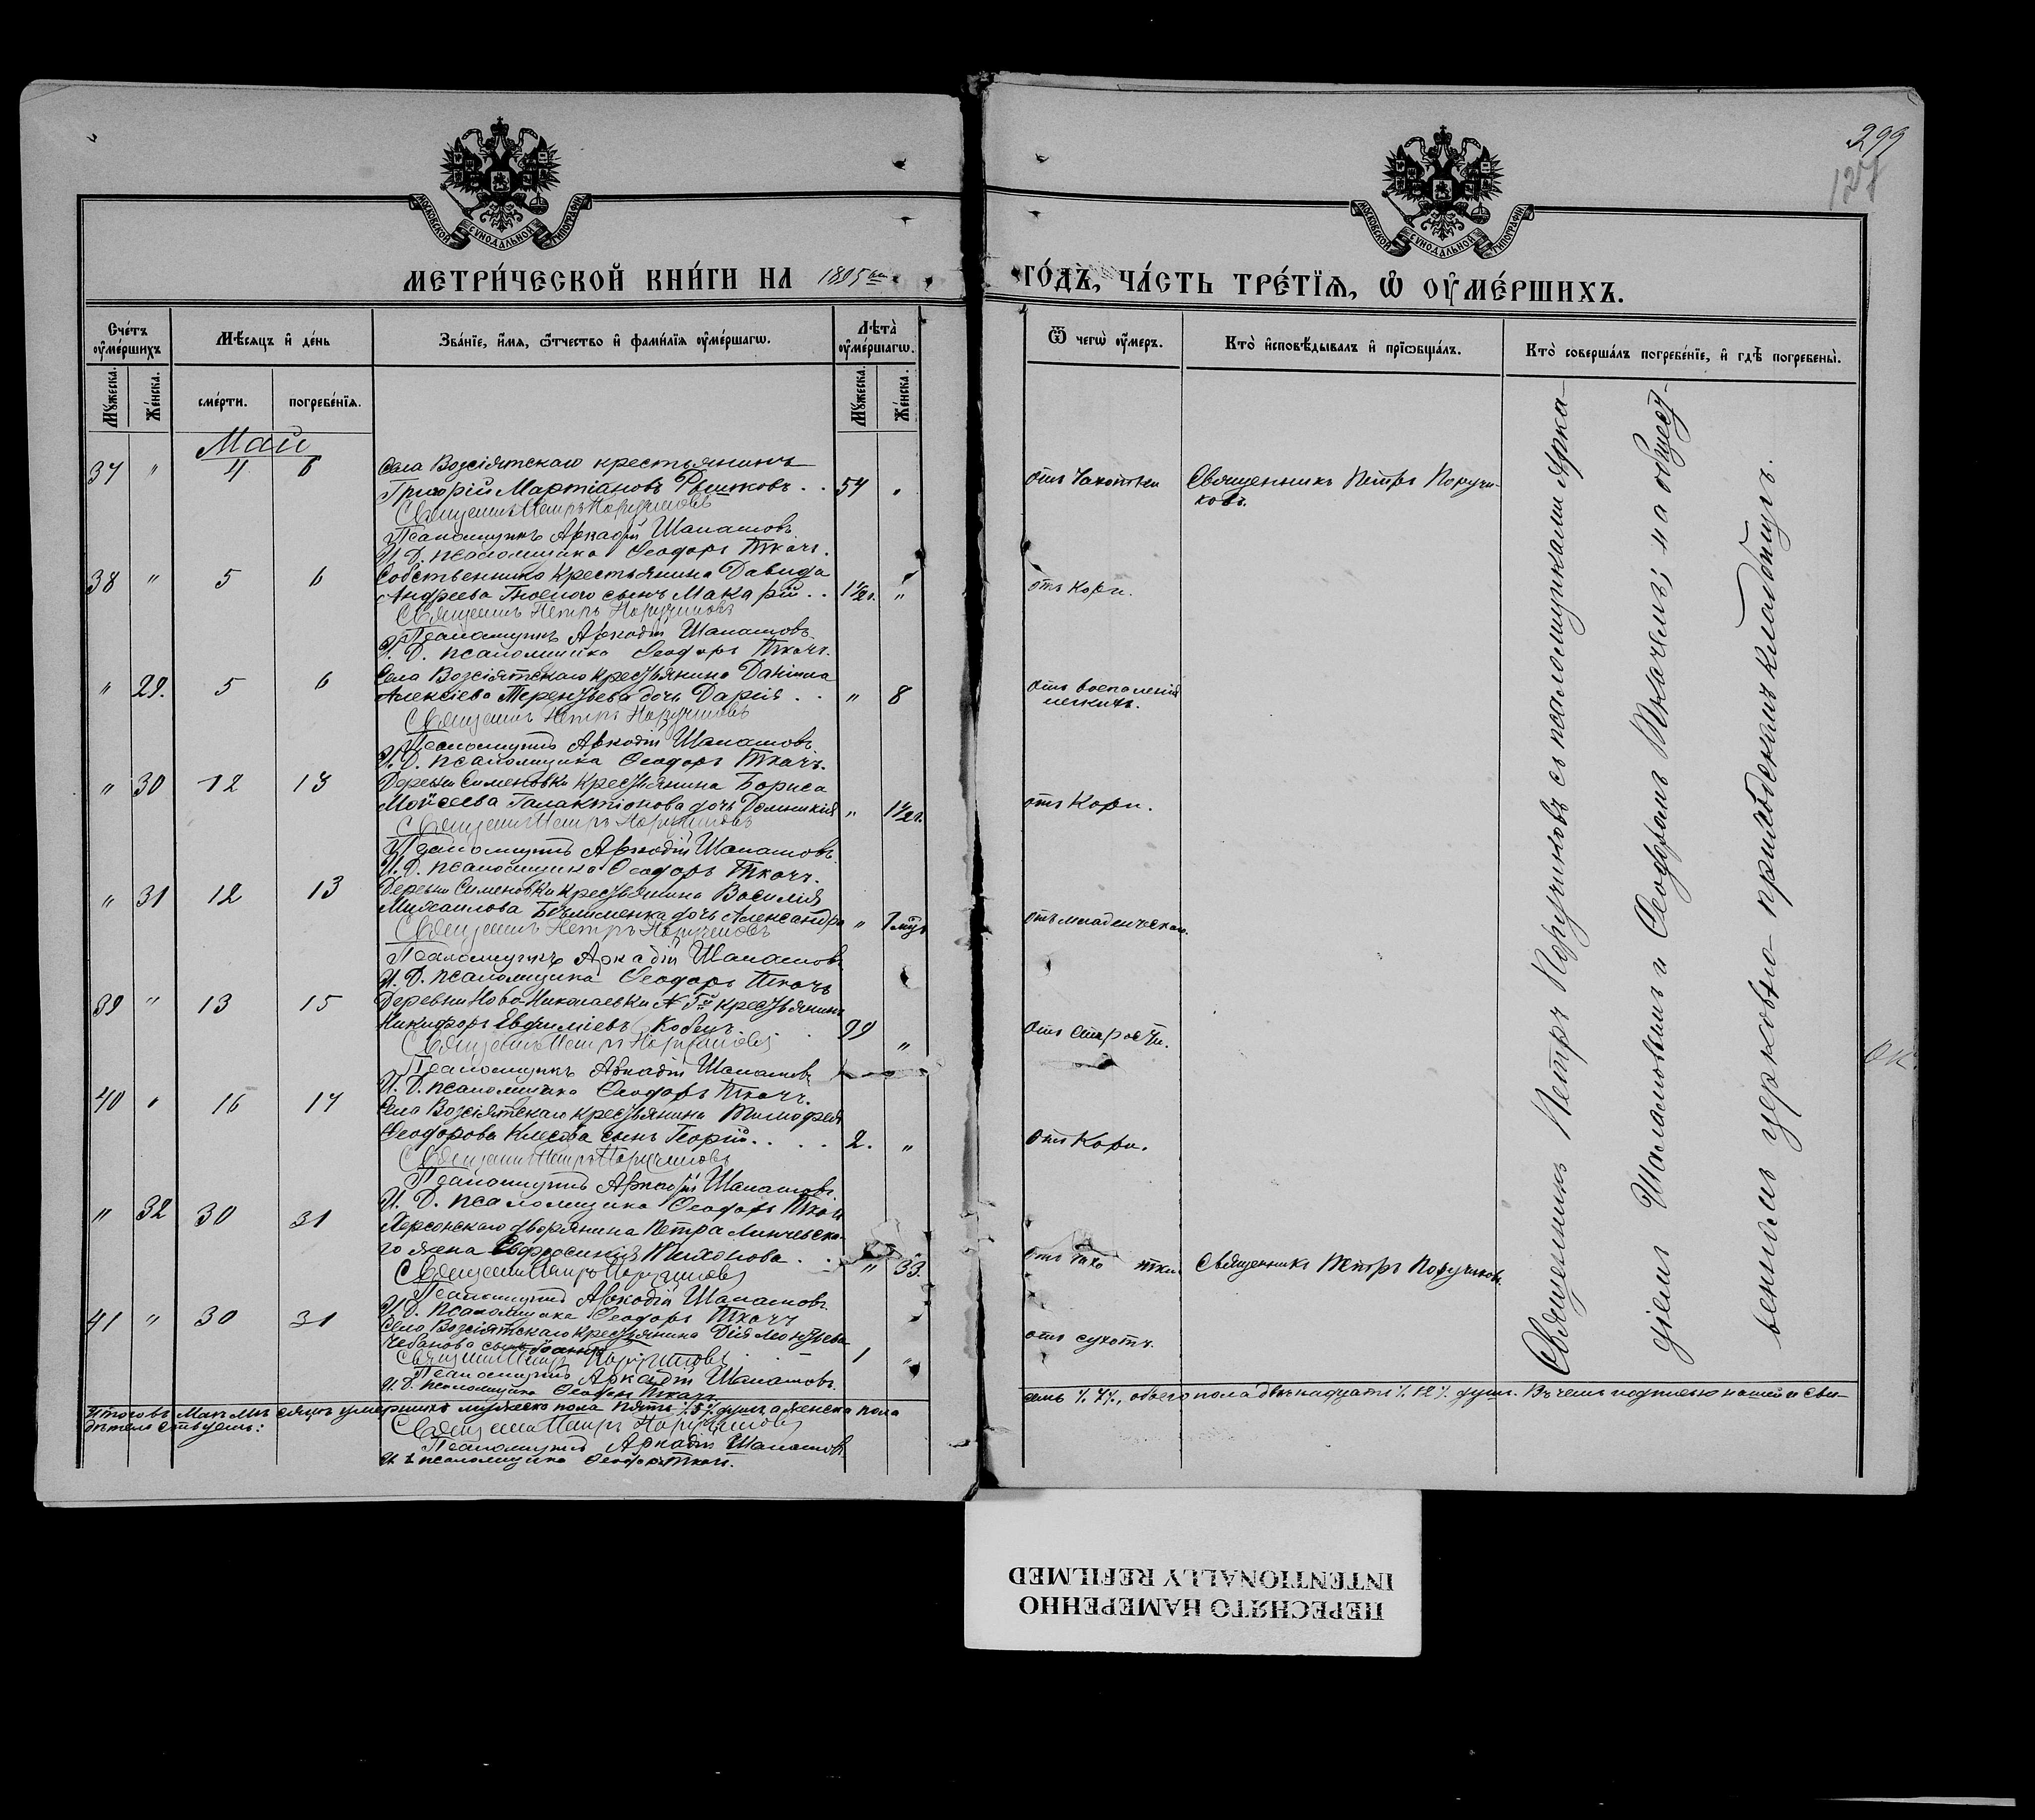 МОСКОВСКОЙ СѴНОДАЛЬНОЙ ТИПОГРАФІИ
МЕТРИ́ЧЕСКОЙ КНИ́ГИ НА 1895
Сче́тъ оу҆ме́ршихъ
Мѣ́сяцъ и҆ де́нь
Зва́нїе, и҆́мѧ, ѻ҆́тчество и҆ фами́лїѧ оу҆ме́ршагѡ.
Лѣ́та оу҆ме́ршагѡ.
Мꙋ́жеска.
Же́нска.
сме́рти.
погребе́нїѧ.
Мꙋ́жеска.
Же́нска.
Май
37 " 4 6 Села Возсіятскаго крестьянинъ
Григорій Мартіановъ Рыжковъ . . 54 "
Священникъ Петръ Поручиковъ
Псаломщикъ Аркадій Шапашовъ
И. Д. псаломщика Ѳеодоръ Ткачъ.
38 " 5 6 Собственника крестьянина Давида
Андреева сынъ Макарій . . 1½ г. "
Священникъ Петръ Поручиковъ
Псаломщикъ Аркадій Шапашовъ
И. Д. псаломщика Ѳеодоръ Ткачъ.
" 29. 5 6 Села Возсіятскаго крестьянина Даніила
Алексіева Терентьева дочь Дарія . . " 8
Священникъ Петръ Поручиковъ
Псаломщикъ Аркадій Шапашовъ
И. Д. псаломщика Ѳеодоръ Ткачъ.
" 30 12 13 Деревни Семеновки крестьянина Бориса
Мойсеева Галактіонова дочь Домникія " 1½ г.
Священникъ Петръ Поручиковъ
Псаломщикъ Аркадій Шапашовъ
И. Д. псаломщика Ѳеодоръ Ткачъ.
" 31 12 13 Деревни Семеновки крестьянина Василія
Михаилова дочь Александра "
Священникъ Петръ Поручиковъ
Псаломщикъ Аркадій Шапашовъ
И. Д. псаломщика Ѳеодоръ Ткачъ
39 " 13 15 Деревни Ново-Николаевки крестьянинъ
Никифоръ Евфиміевъ Кобецъ . 99 "
Священникъ Петръ Поручиковъ
Псаломщикъ Аркадій Шапашовъ
И. Д. псаломщика Ѳеодоръ Ткачъ.
40 " 16 17 Села Возсіятскаго крестьянина Тимофея
Ѳеодорова сынъ Георгій . . . . 2. "
Священникъ Петръ Поручиковъ
Псаломщикъ Аркадій Шапашовъ
И. Д. псаломщика Ѳеодоръ Ткачъ
" 32 30 31 Херсонскаго дворянина Петра Линчевска-
го жена Евфросинія Тихонова . . " 33.
Священникъ Петръ Поручиковъ
Псаломщикъ Аркадій Шапашовъ
И. Д. псаломщика Ѳеодоръ Ткачъ
41 " 30 31 Села Возсіятскаго крестьянина Леонтьева
Чебанова сынъ Іоаннъ 1 "
Священникъ Петръ Поручиковъ
Псаломщикъ Аркадій Шапашовъ.
И. Д. псаломщика Ѳеодоръ Ткачъ
Итого въ Маѣ мѣсяцѣ умершихъ мужеска пола пять % 5 % душъ, а женска пола
дѣтельствуемъ:
Священникъ Петръ Поручиковъ
Псаломщикъ Аркадій Шапашовъ
И. д. псаломщика Ѳеодоръ Ткачъ.
299
127
МОСКОВСКОЙ СѴНОДАЛЬНОЙ ТИПОГРАФІИ
ГО́ДЪ, ЧА́СТЬ ТРЕ́ТЇѦ, Ѡ҆ ОУ҆МЕ́РШИХЪ.
Ѿ чегѡ̀ оу҆́меръ.
Кто̀ и҆сповѣ́дывалъ и҆ прїѡбща́лъ.
Кто̀ соверша́лъ погребе́нїе, и҆ гдѣ̀ погребены̀.
отъ чахотки Священникъ Петръ Поручи-
ковъ.
отъ кори.
отъ воспаленія
легкихъ.
отъ кори.
отъ младенческаго.
отъ старости.
отъ кори.
отъ чахотки. Священникъ Петръ Поручиковъ.
отъ сухотъ.
Священникъ Петръ Поручиковъ съ псаломщиками Арка-
діемъ Шапашовымъ и Ѳеодоромъ Ткачемъ; на общест-
венномъ церковно-приходскомъ кладбищѣ.
ОК.
семь % 7 %, обоего пола двѣнадцать % 12 % душъ. Въ чемъ подписью нашею сви-
ПЕРЕСНЯТО НАМЕРЕННО
INTENTIONALLY REFILMED